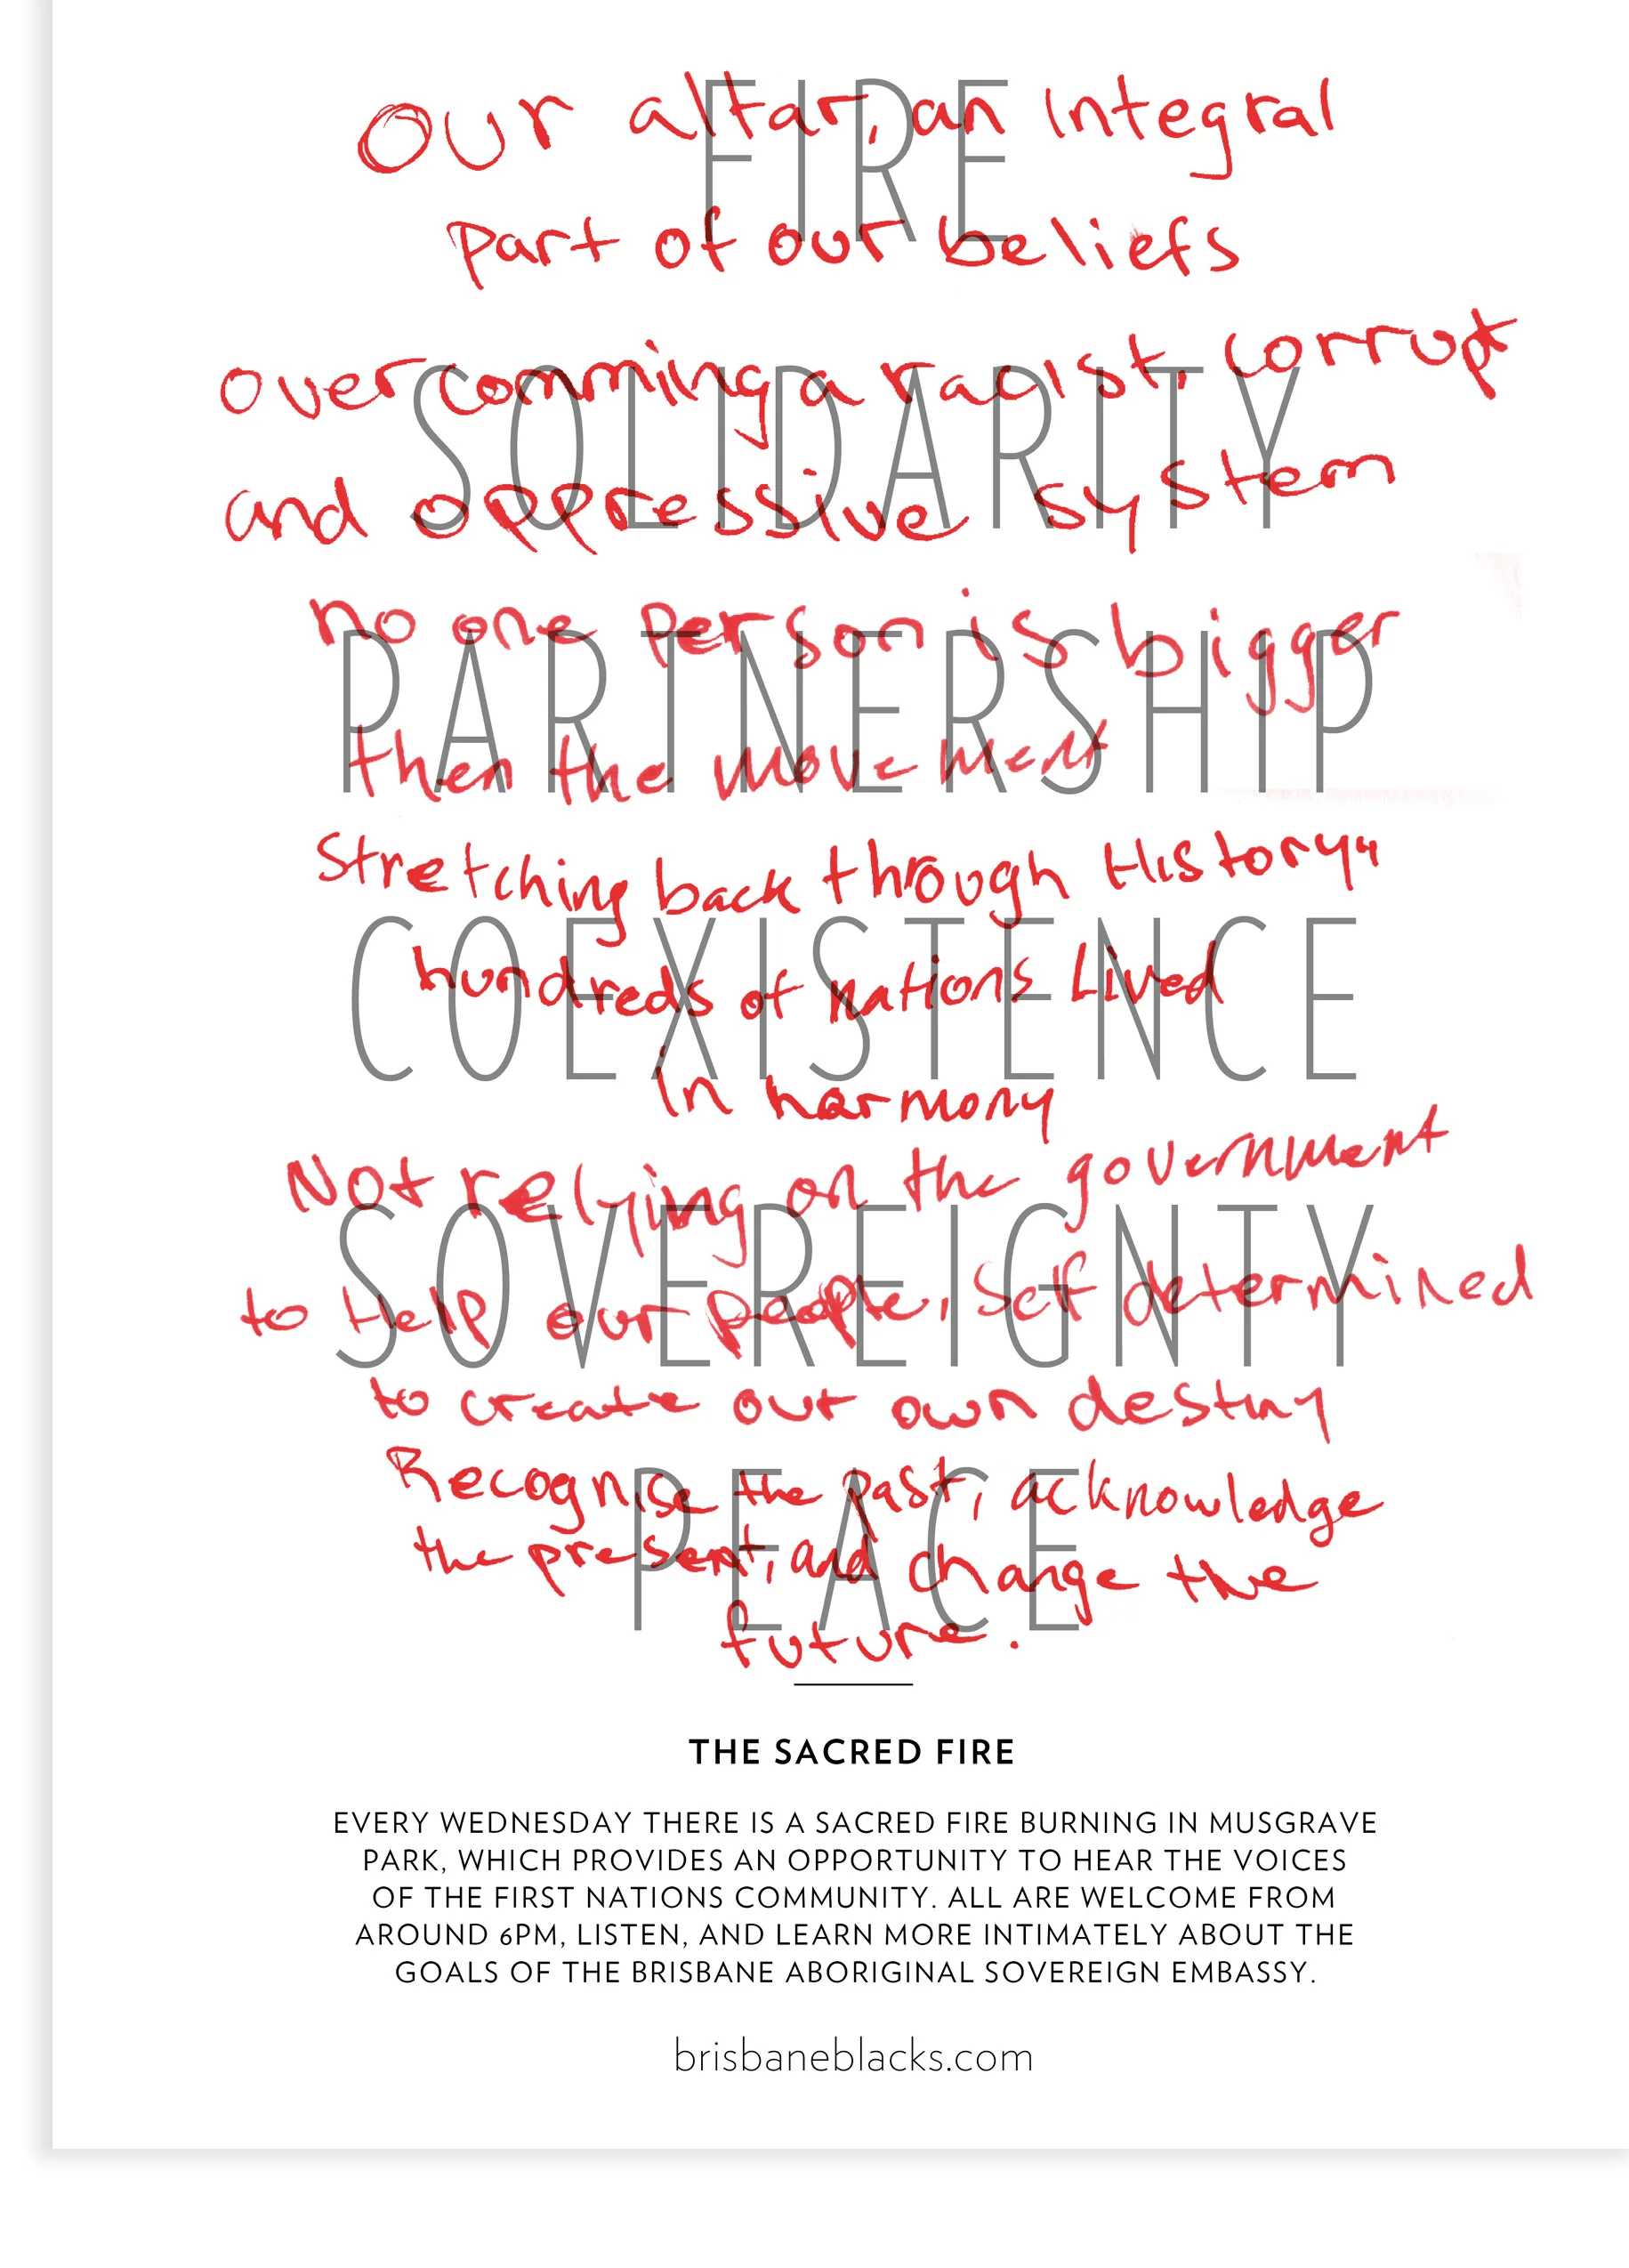 FIRE
Our altar, an integral
part of our beliefs
SOLIDARITY
overcomming a racist, corrupt
and oppressive system
PARTNERSHIP
no one person is bigger
then the movement
COEXISTENCE
Stretching back through History,,
hundreds of nations Lived
in harmony
SOVEREIGNTY
Not relying on the government
to Help our people, self determined
to create our own destiny
PEACE
Recognise the past, acknowledge
the present, and change the
future.
THE SACRED FIRE
EVERY WEDNESDAY THERE IS A SACRED FIRE BURNING IN MUSGRAVE
PARK, WHICH PROVIDES AN OPPORTUNITY TO HEAR THE VOICES
OF THE FIRST NATIONS COMMUNITY. ALL ARE WELCOME FROM
AROUND 6PM, LISTEN, AND LEARN MORE INTIMATELY ABOUT THE
GOALS OF THE BRISBANE ABORIGINAL SOVEREIGN EMBASSY.
brisbaneblacks.com